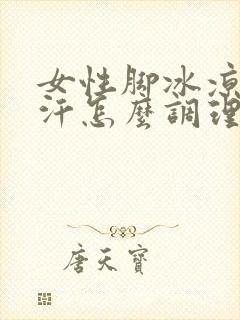 女性脚冰凉
汗怎麼調理
唐天寶